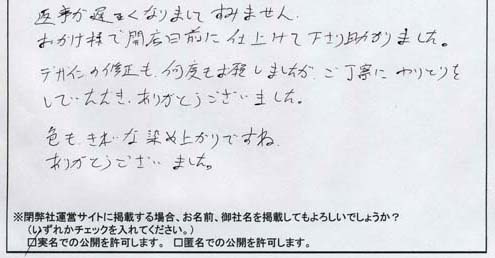 返事が遅くなりまして すみません.
おかけ様で開店日前に 仕上げて下さり助かりました。
デザインの修正も、何度もお願しましたが、ご丁寧に やりとりを
していただき、ありがとうございました。
色も、きれいな染め上がりですね.
ありがとうございました。
※閉弊社運営サイトに掲載する場合、お名前、御社名を掲載してもよろしいでしょうか？
（いずれかチェックを入れてください。）
□実名での公開を許可します。 □匿名での公開を許可します。